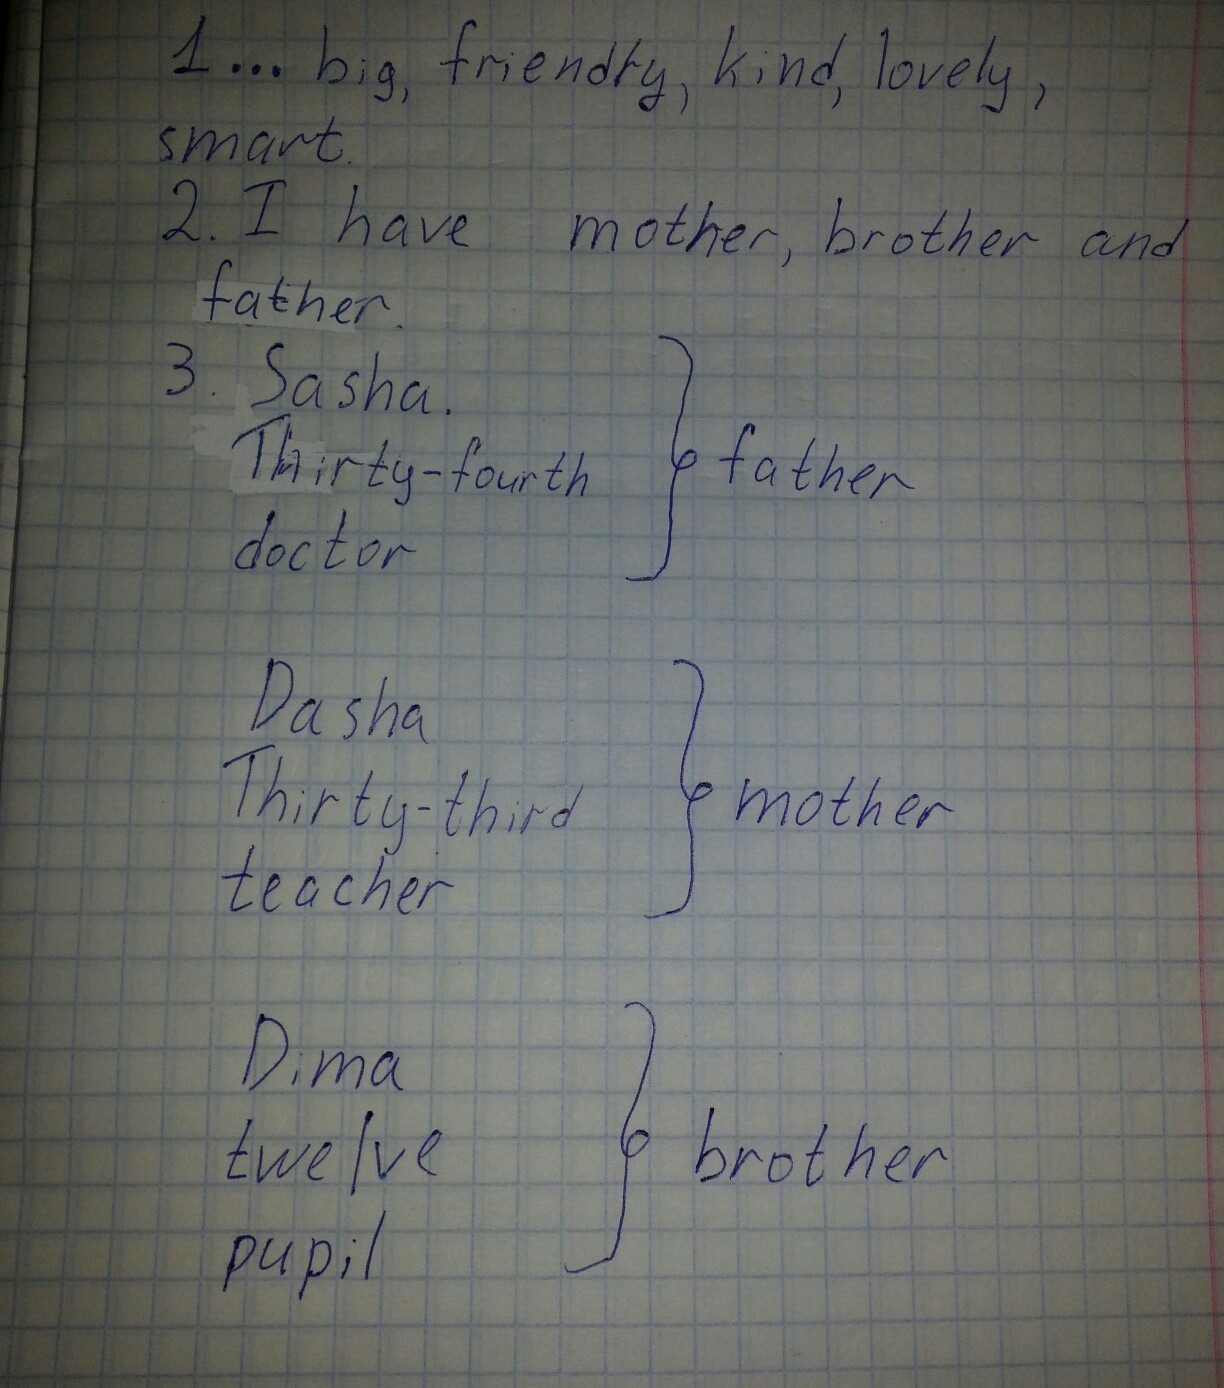 1... big, friendly, kind, lovely,
smart.
2. I have mother, brother and
father.
3. Sasha.
Thirty-fourth
doctor
father
Dasha
Thirty-third
teacher
mother
Dima
twelve
pupil
brother